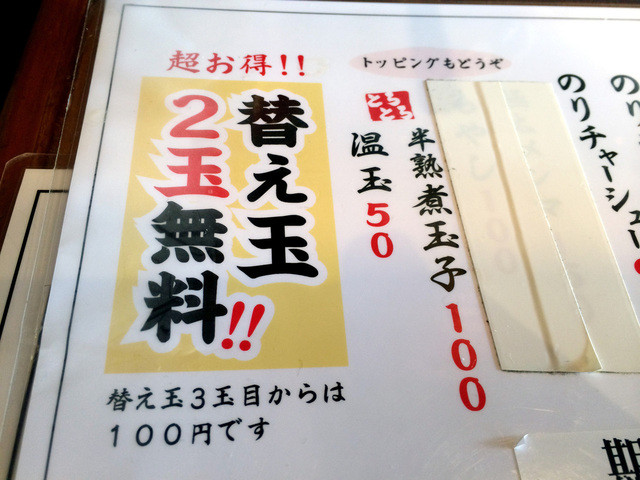 超お得!!
替え玉
2玉無料!!
替え玉3玉目からは
100円です
トッピングもどうぞ
とろとろ
半熟煮玉子100
温玉50
のりチャーシュー
のり
期